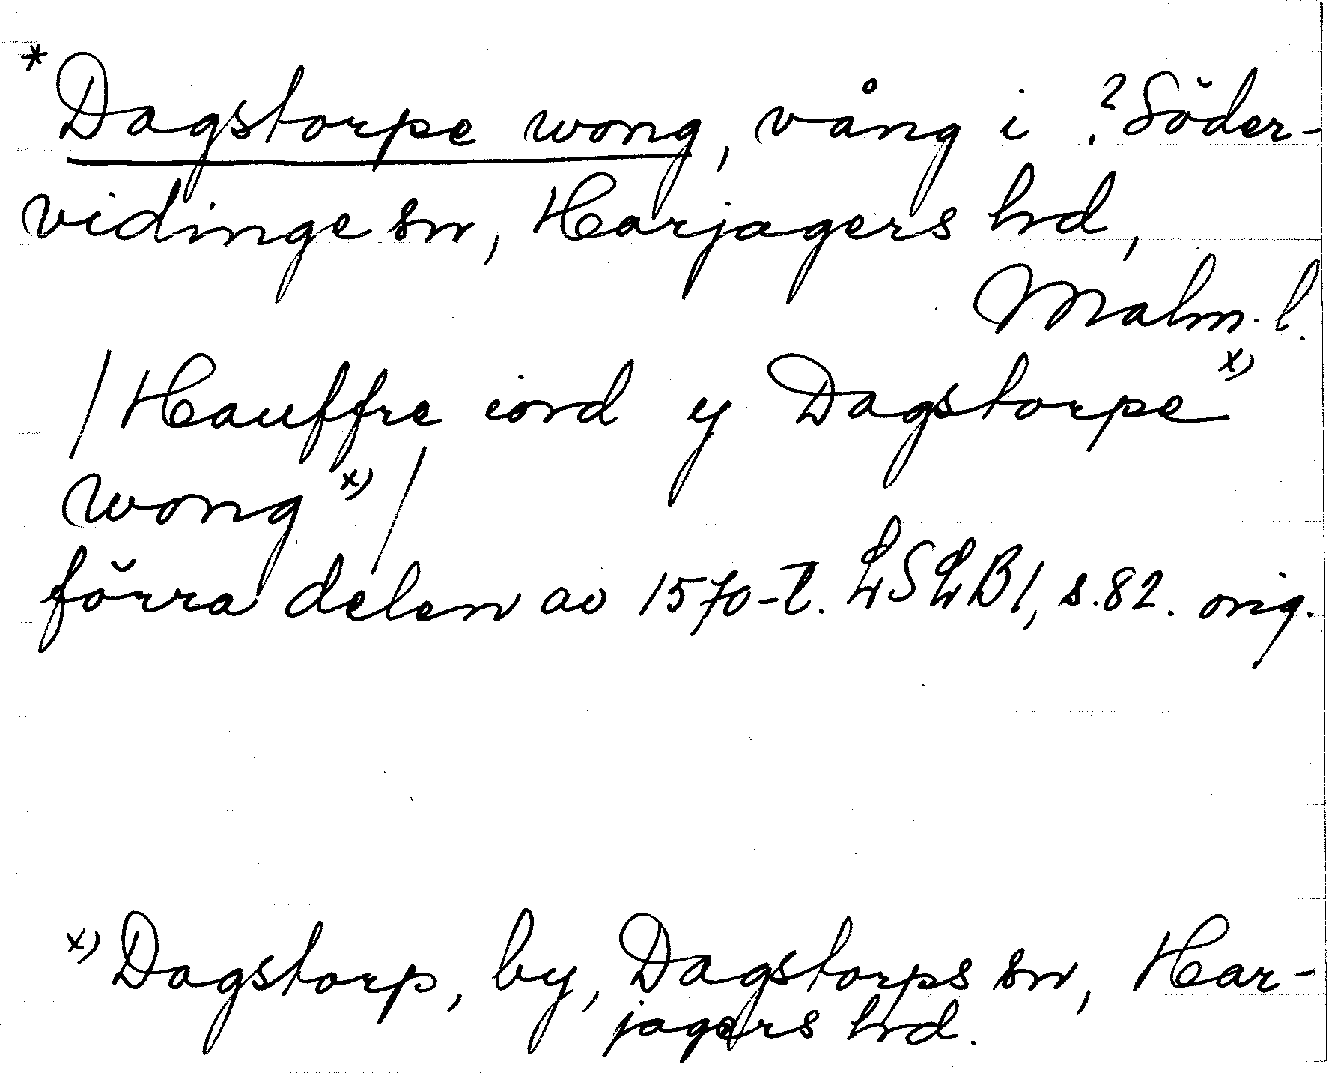 * Dagstorpe wong, vång i ? Söder-
vidinge sn, Harjagers hrd,
Malm. l.
/Hauffre iord y Dagstorpe x)
wong x)/
förra delen av 1570-t. LSLB1, s. 82. orig.
x) Dagstorp, by, Dagstorps sn, Har-
jagers hrd.